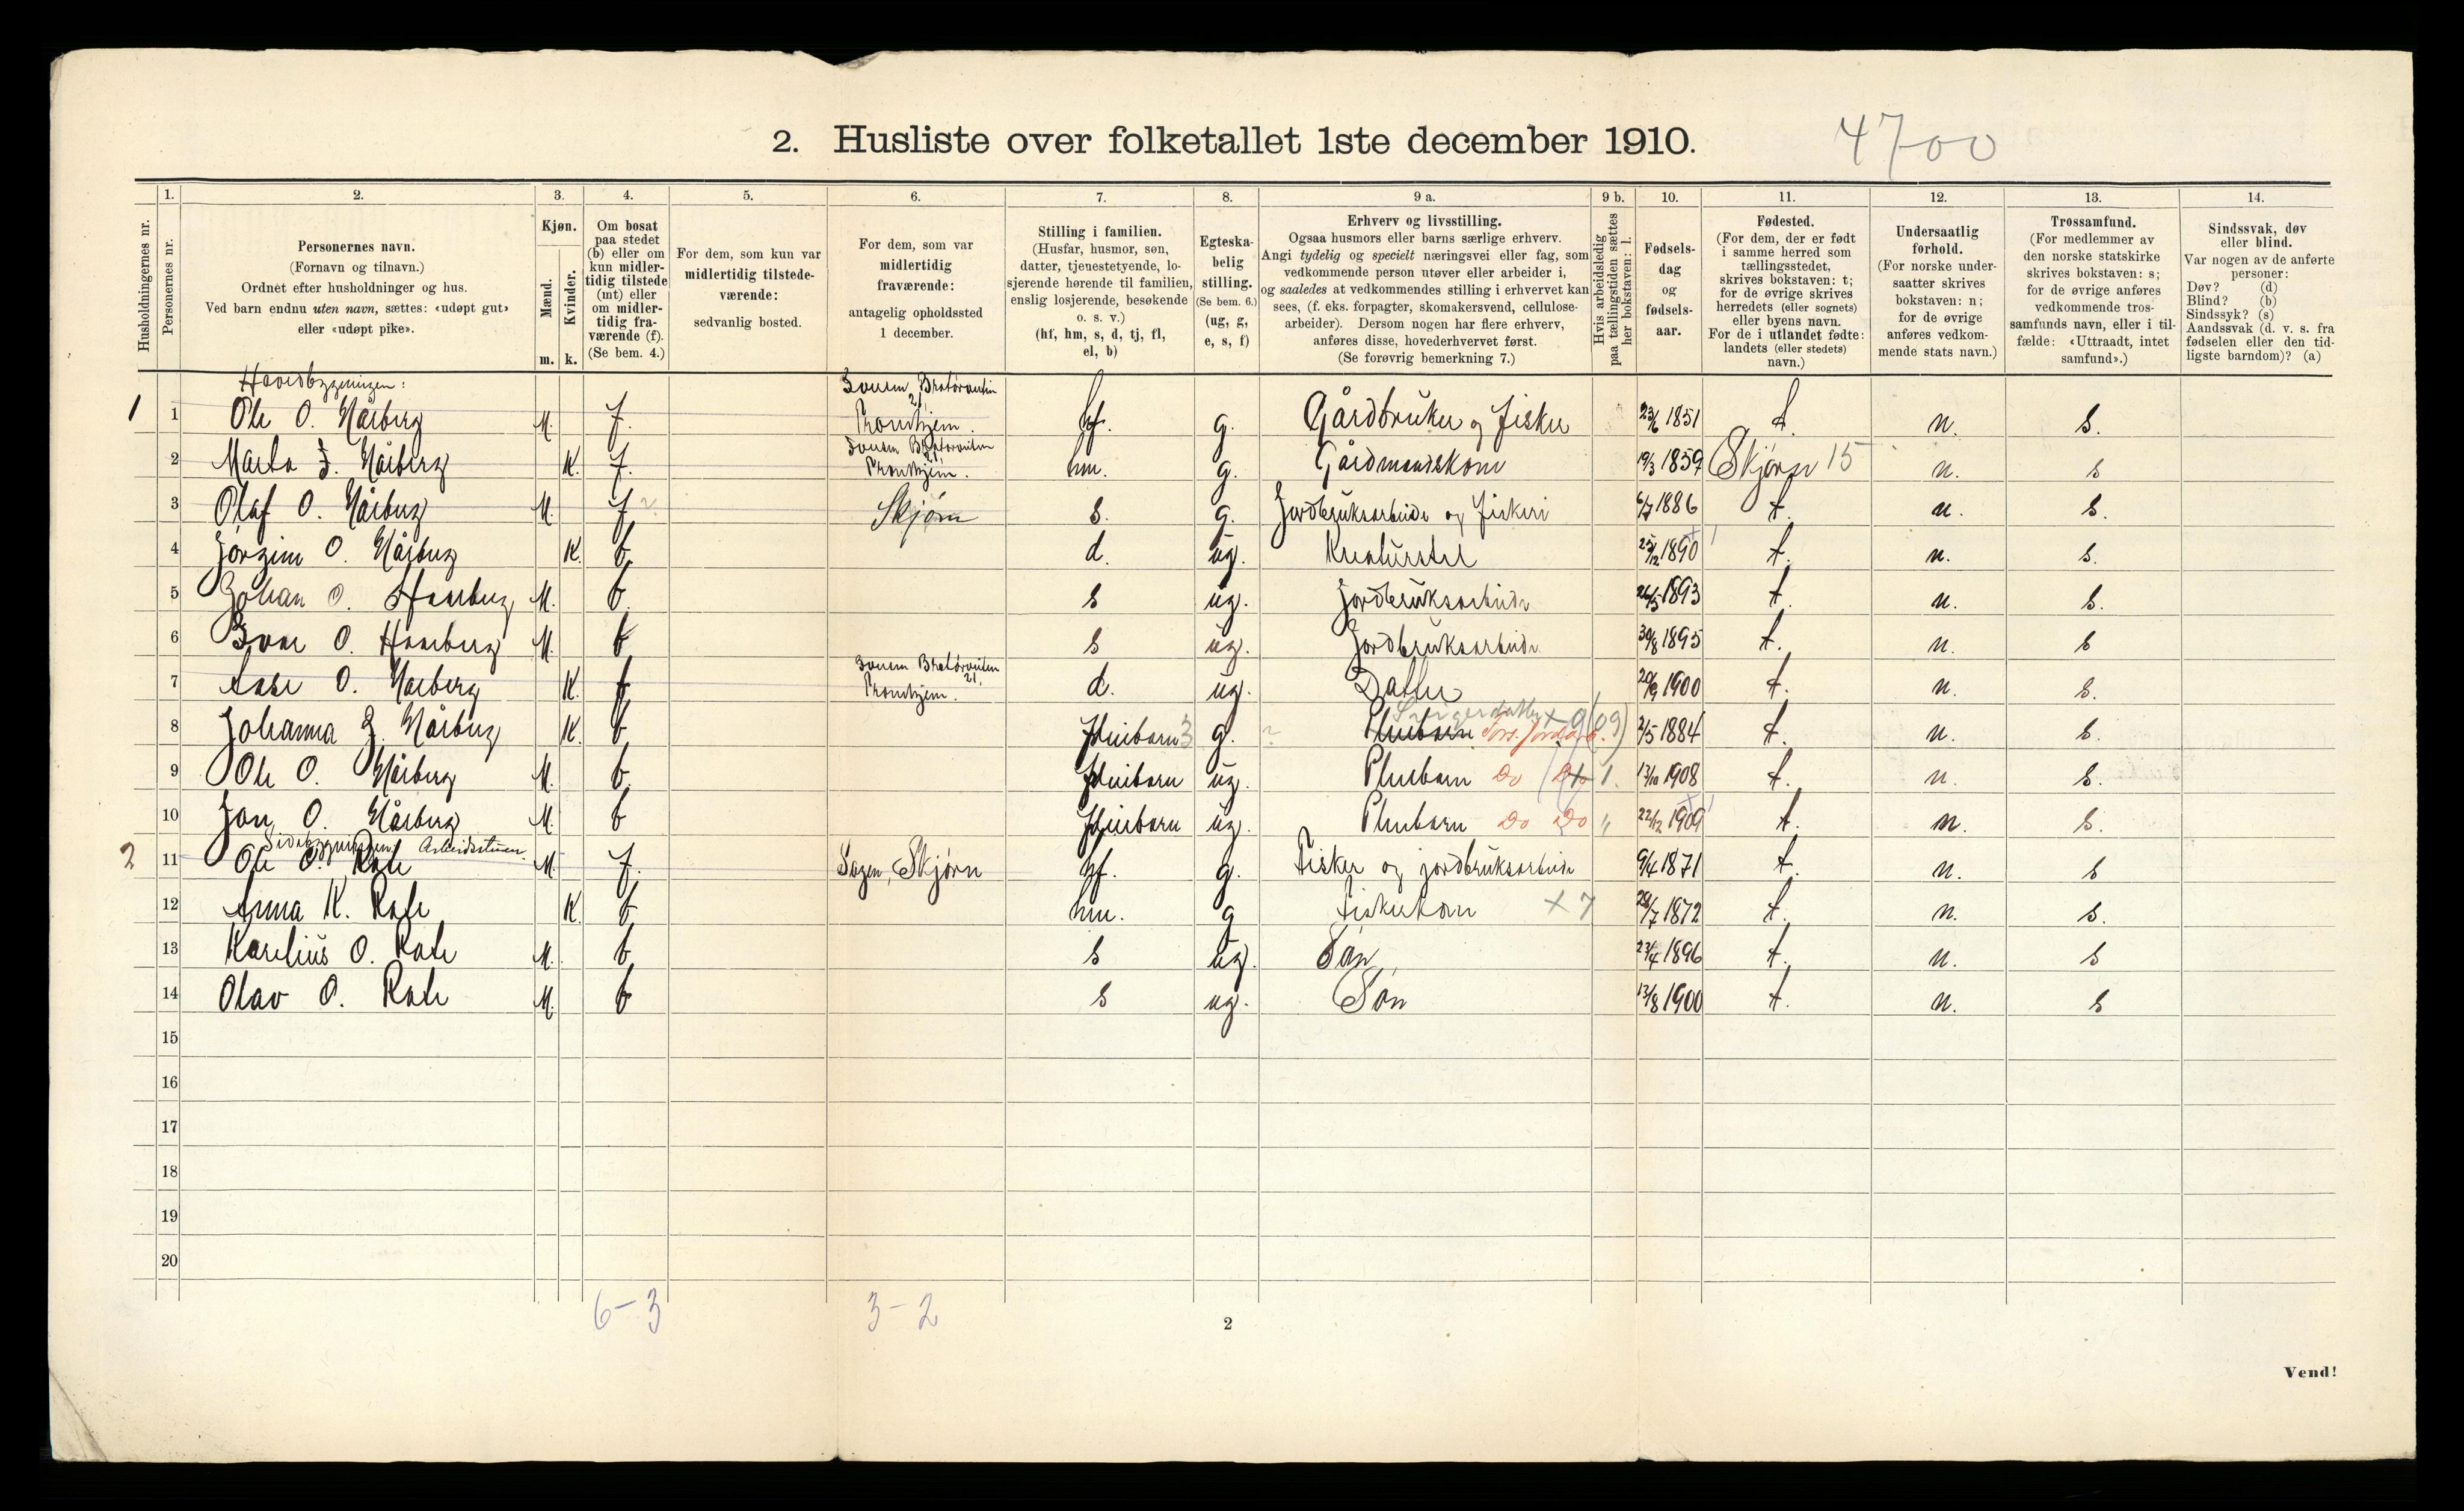 2. Husliste over folketallet 1ste december 1910.
4700
Husholdningernes nr.
1.
Personernes nr.
2.
Personernes navn.
(Fornavn og tilnavn.)
Ordnet efter husholdninger og hus.
Ved barn endnu uten navn, sættes: «udøpt gut»
eller «udøpt pike».
3.
Kjøn.
Mænd.
Kvinder.
m. k.
4.
Om bosat
paa stedet
(b) eller om
kun midler-
tidig tilstede
(mt) eller
om midler-
tidig fra-
værende (f).
(Se bem. 4.)
5.
For dem, som kun var
midlertidig tilstede-
værende:
sedvanlig bosted.
6.
For dem, som var
midlertidig
fraværende:
antagelig opholdssted
1 december.
7.
Stilling i familien.
(Husfar, husmor, søn,
datter, tjenestetyende, lo-
sjerende hørende til familien,
enslig losjerende, besøkende
o. s. v.)
(hf, hm, s, d, tj, fl,
el, b)
8.
Egteska-
belig
stilling.
(Se bem. 6.)
(ug, g,
e, s, f)
9 a.
Erhverv og livsstilling.
Ogsaa husmors eller barns særlige erhverv.
Angi tydelig og specielt næringsvei eller fag, som
vedkommende person utøver eller arbeider i,
og saaledes at vedkommendes stilling i erhvervet kan
sees, (f. eks. forpagter, skomakersvend, cellulose-
arbeider). Dersom nogen har flere erhverv,
anføres disse, hovederhvervet først.
(Se forøvrig bemerkning 7.)
9 b.
Hvis arbeidsledig
paa tællingstiden sættes
her bokstaven: l.
10.
Fødsels-
dag
og
fødsels-
aar.
11.
Fødested.
(For dem, der er født
i samme herred som
tællingsstedet,
skrives bokstaven: t;
for de øvrige skrives
herredets (eller sognets)
eller byens navn.
For de i utlandet fødte:
landets (eller stedets)
navn.)
12.
Undersaatlig
forhold.
(For norske under-
saatter skrives
bokstaven: n;
for de øvrige
anføres vedkom-
mende stats navn.)
13.
Trossamfund.
(For medlemmer av
den norske statskirke
skrives bokstaven: s;
for de øvrige anføres
vedkommende tros-
samfunds navn, eller i til-
fælde: «Uttraadt, intet
samfund».)
14.
Sindssvak, døv
eller blind.
Var nogen av de anførte
personer:
Døv? (d)
Blind? (b)
Sindssyk? (s)
Aandssvak (d. v. s. fra
fødselen eller den tid-
ligste barndom)? (a)
Hovedbygningen:
1 1 Ole O. Hårberg M. f. Trondhjem. hf. g. Gårdbruker og fisker 23/6 1851 t. n. s.
2 Marta J. Hårberg K. f. Trondhjem. hm. g. Gårdmandskone 19/3 1859 Skjørn 15 n. s
3 Olaf O. Hårberg M. f Skjørn s. g. Jordbruksarbeide og fiskeri 6/7 1886 t. n. s.
4 Jørgine O. Hårberg K. b. d. ug. Kreaturstel 25/12 1890 t. n. s.
5 Johan O. Haarberg M. b. s ug. Jordbruksarbeide 26/5 1893 t. n. s.
6 Ivar O. Haarberg M. b s ug. Jordbruksarbeide 30/8 1895 t. n. s
7 Aase O. Haarberg K. f Trondhjem. d. ug. Datter 20/9 1900 t. n. s.
8 Johanna J. Hårberg K. b Pleiebarn 3 g. Svigerdatter 2/5 1884 t. n. s.
9 Ole O. Hårberg M. b. Pleiebarn ug. Pleiebarn Do Do 1. 13/10 1908 t. n. s.
10 Jon O. Hårberg M. b Pleiebarn ug. Pleiebarn Do Do " 22/12 1909 t. n. s.
Sidebygningen: Arbeidsstuen.
2 11 Ole O. Rabe M. f. Skjørn hf. g. Fisker og jordbruksarbeide 9/4 1871 t. n. s
12 Anna K. Rabe K. b hm. g Fiskerkone x 7 28/7 1872 t. n. s.
13 Karelius O. Rabe M. b s ug. Søn 23/4 1896 t. n. s
14 Olav O. Rabe M. b s ug. Søn 13/8 1900 t. n. s
15
16
17
18
19
20
6-3
3-2
2
Vend!